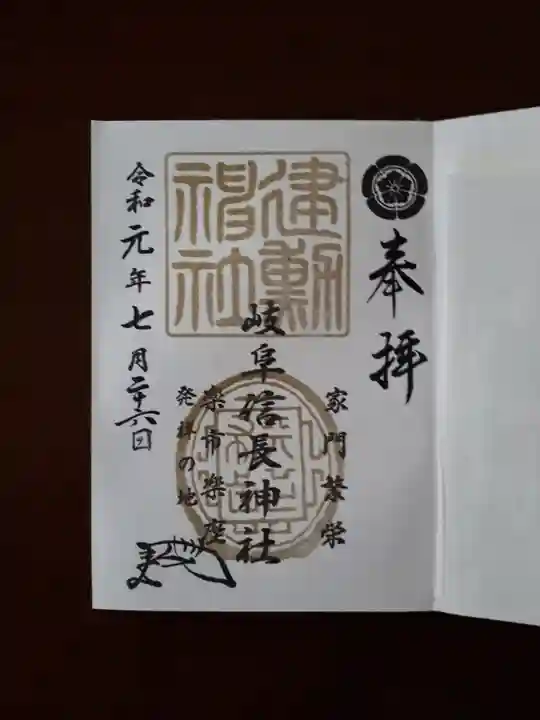 奉拝
家門繁栄
建勲
神社
岐阜信長神社
楽市楽座
発祥の地
令和元年七月二十六日